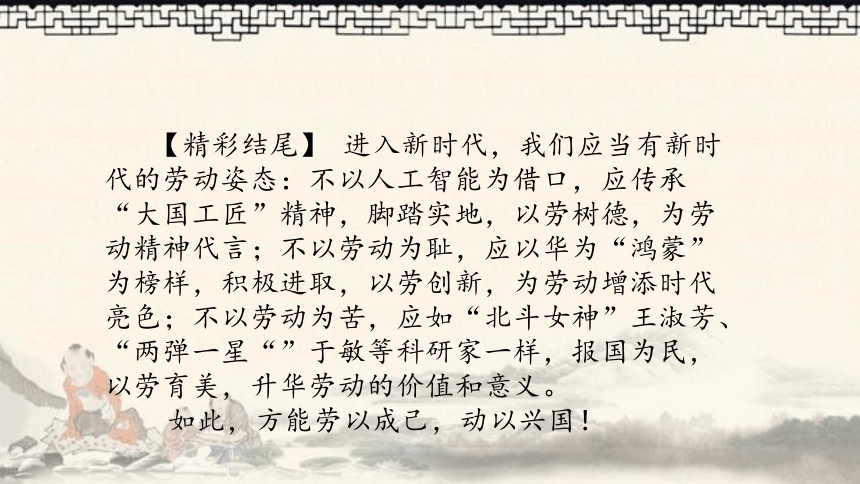 【精彩结尾】 进入新时代，我们应当有新时
代的劳动姿态：不以人工智能为借口，应传承
“大国工匠”精神，脚踏实地，以劳树德，为劳
动精神代言；不以劳动为耻，应以华为“鸿蒙”
为榜样，积极进取，以劳创新，为劳动增添时代
亮色；不以劳动为苦，应如“北斗女神”王淑芳、
“两弹一星“”于敏等科研家一样，报国为民，
以劳育美，升华劳动的价值和意义。
如此，方能劳以成己，动以兴国！